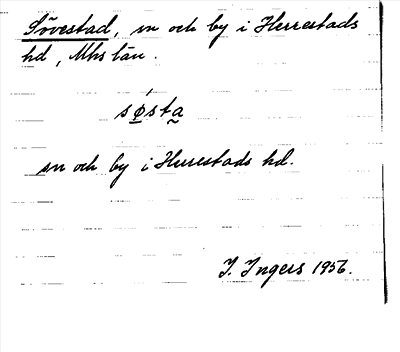 Sövestad, sn och by i Herrestads
hd, Mhs län.
søsta
sn och by i Herrestads hd.
I. Ingers 1956.